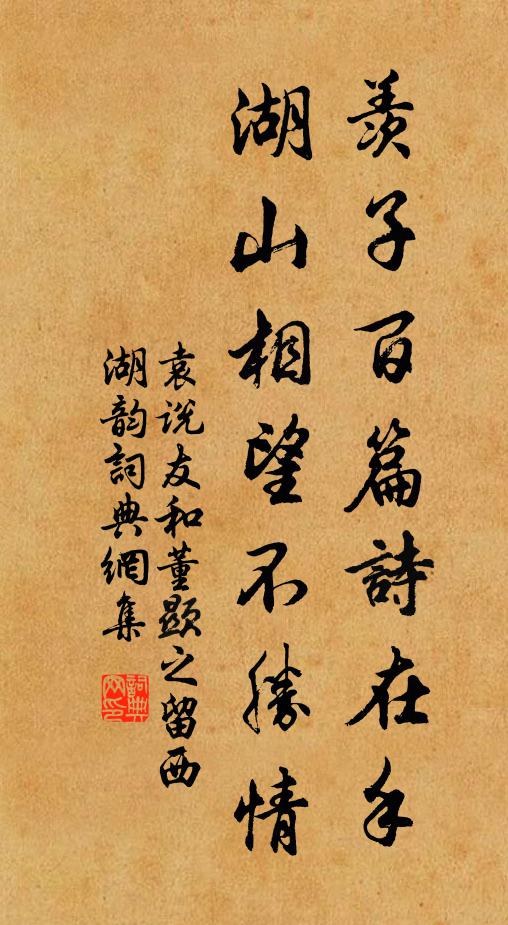 羨子百篇詩在手
湖山相望不勝情
袁说友和董顯之留西
湖韵詞典網集
詞典網印